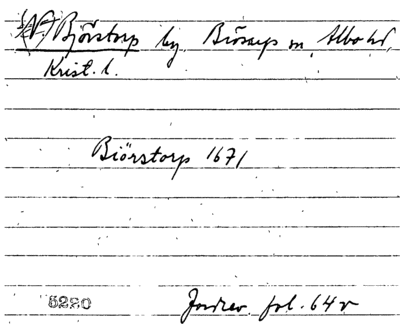 (N) Björstorp by Brösarps sn Albo hd,
Krist. l.
Biörstorp 1671
5220 Jordrev. fol. 64 v